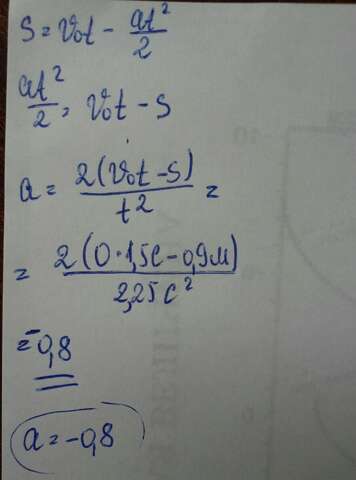 S = V₀t - at²/2
at²/2 = V₀t - S
a = 2(V₀t - S)/t² =
= 2(0·1,5с - 0,9м)/2,25с²
= -0,8
a = -0,8